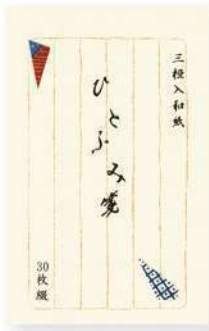 三椏入和紙
ひとふみ箋
30枚綴